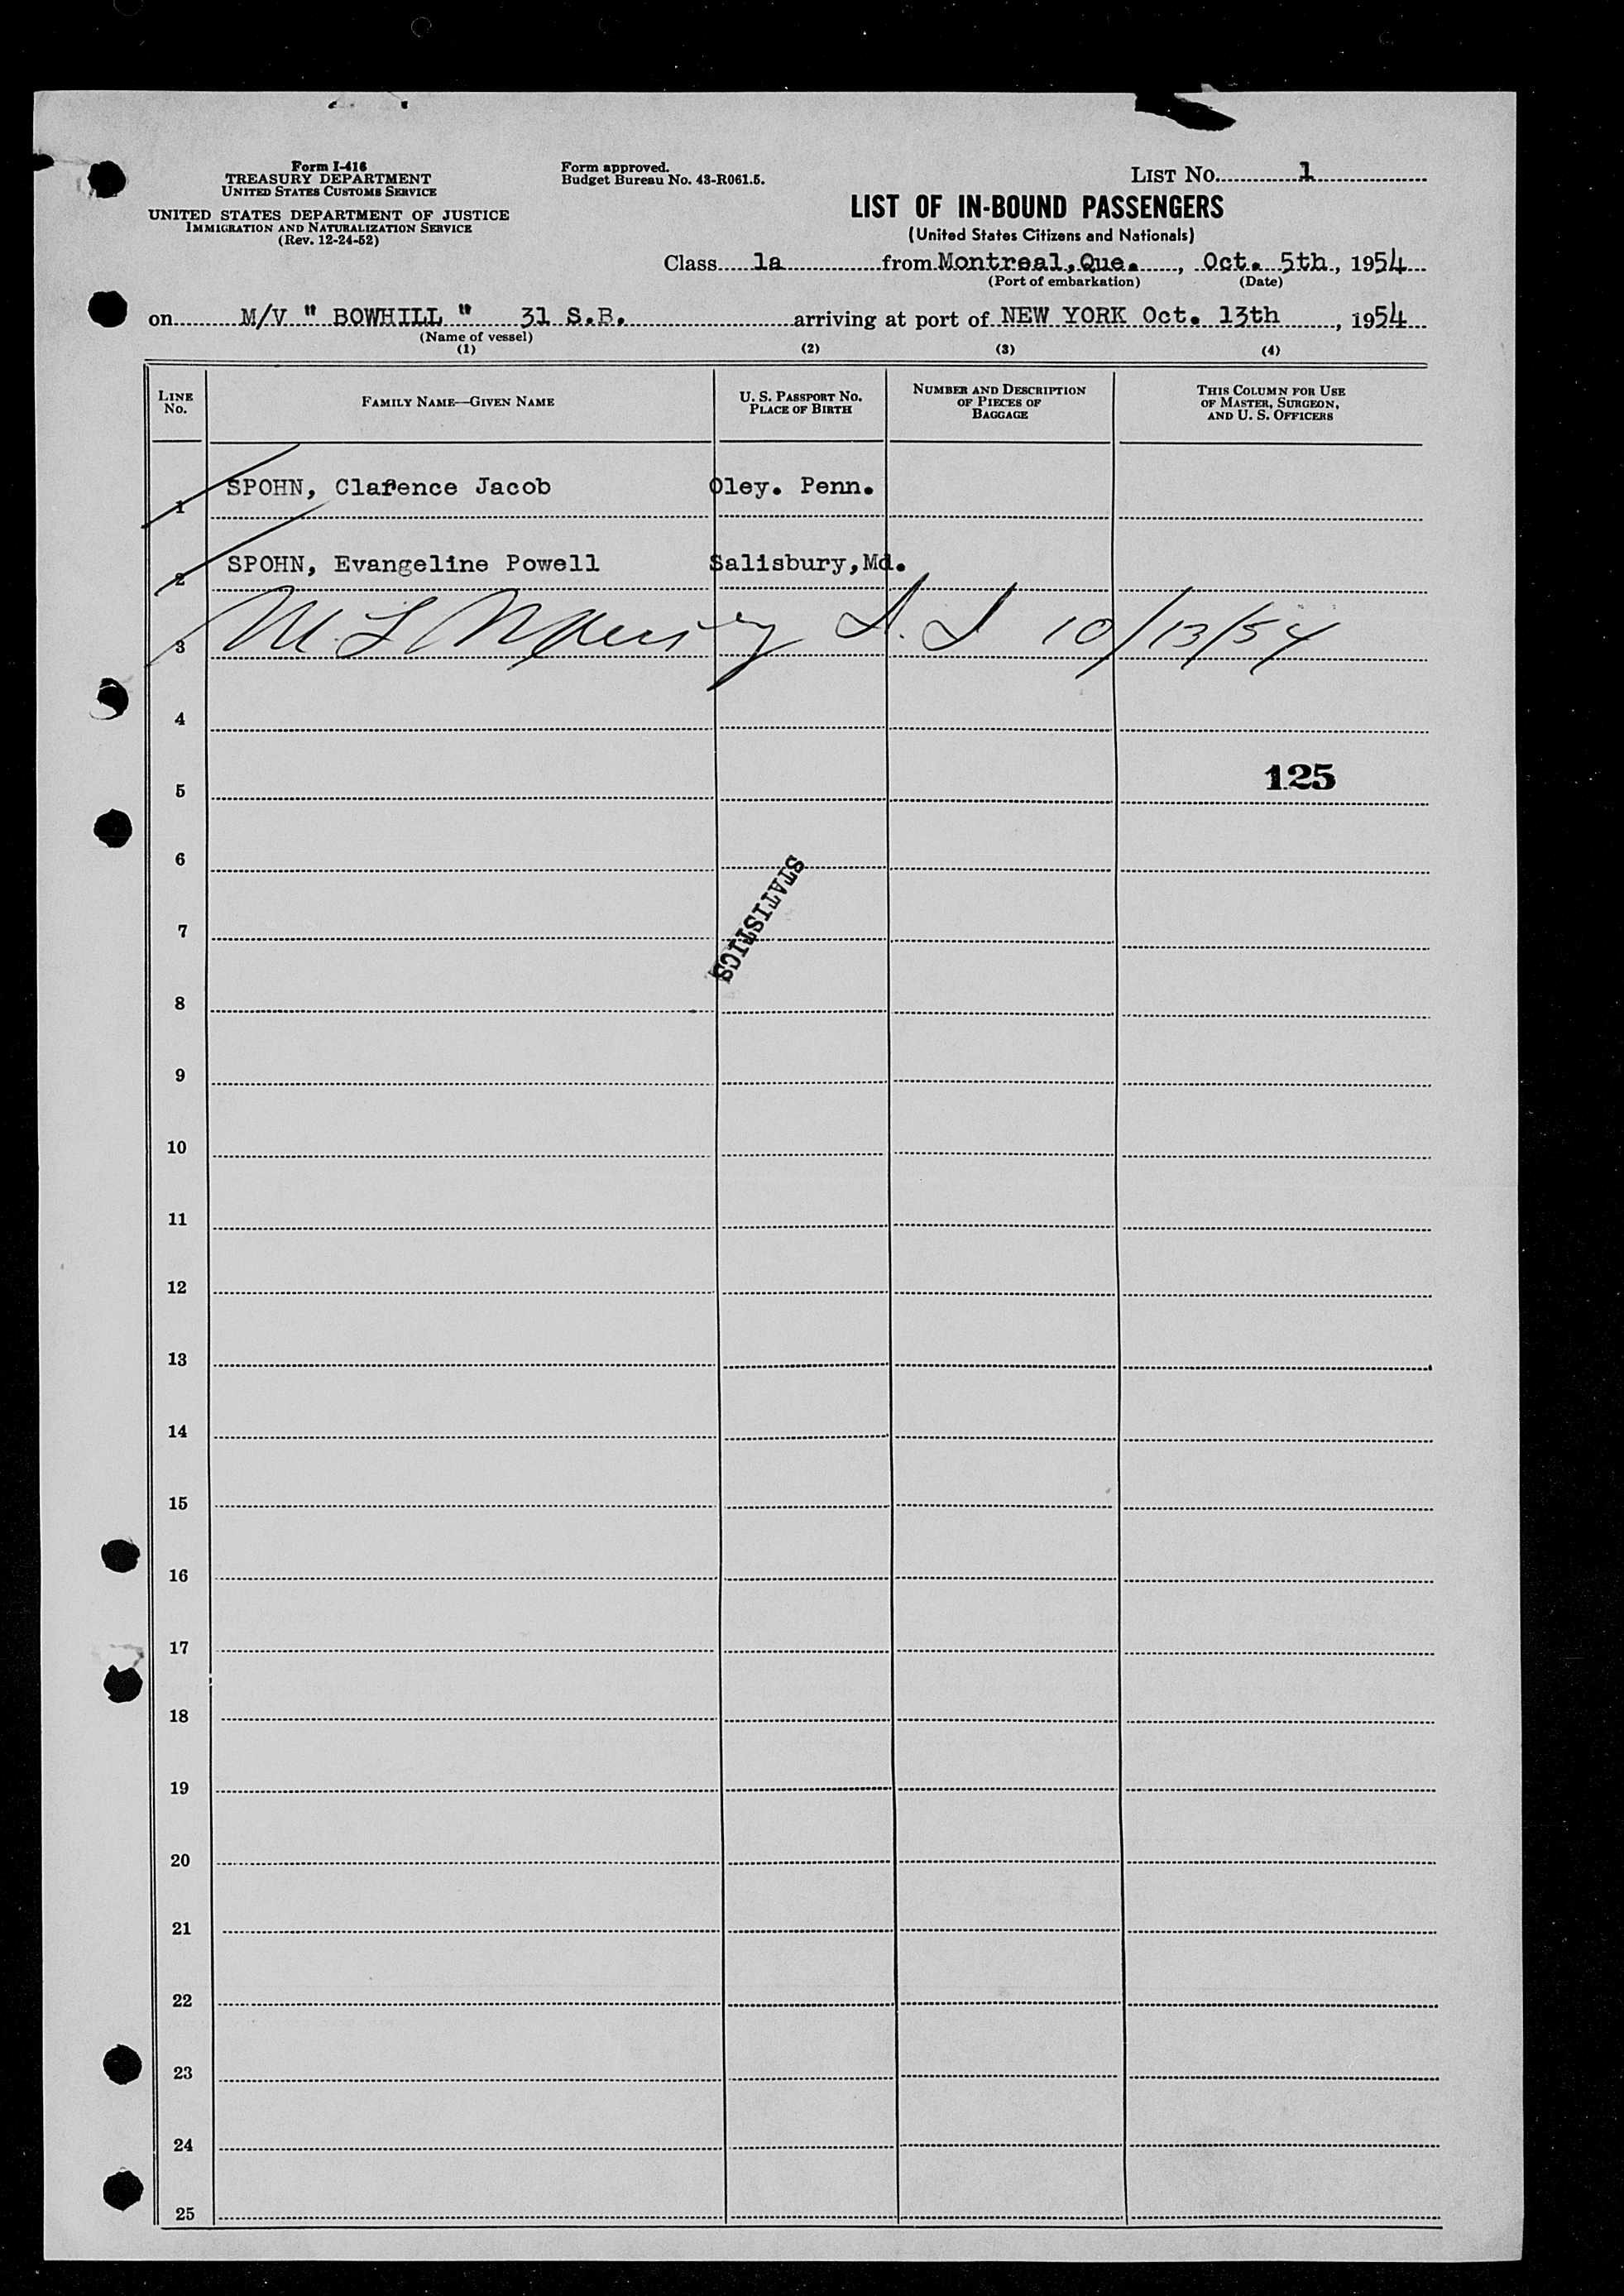 Form I-416
TREASURY DEPARTMENT
UNITED STATES CUSTOMS SERVICE
UNITED STATES DEPARTMENT OF JUSTICE
IMMIGRATION AND NATURALIZATION SERVICE
(Rev. 12-24-52)
Form approved.
Budget Bureau No. 43-R061.5.
LIST No. 1
LIST OF IN-BOUND PASSENGERS
(United States Citizens and Nationals)
Class 1a from Montreal, Que., Oct. 5th, 1954
(Port of embarkation) (Date)
on M/V " BOWHILL " 31 S.B. arriving at port of NEW YORK Oct. 13th, 1954
(Name of vessel)
(1) (2) (3) (4)
LINE No. FAMILY NAME—GIVEN NAME U. S. PASSPORT No. PLACE OF BIRTH NUMBER AND DESCRIPTION OF PIECES OF BAGGAGE THIS COLUMN FOR USE OF MASTER, SURGEON, AND U. S. OFFICERS
1 SPOHN, Clarence Jacob Oley. Penn.
2 SPOHN, Evangeline Powell Salisbury, Md.
3 M. L. 10/13/54
4
125
5
6
STATISTICS
7
8
9
10
11
12
13
14
15
16
17
18
19
20
21
22
23
24
25